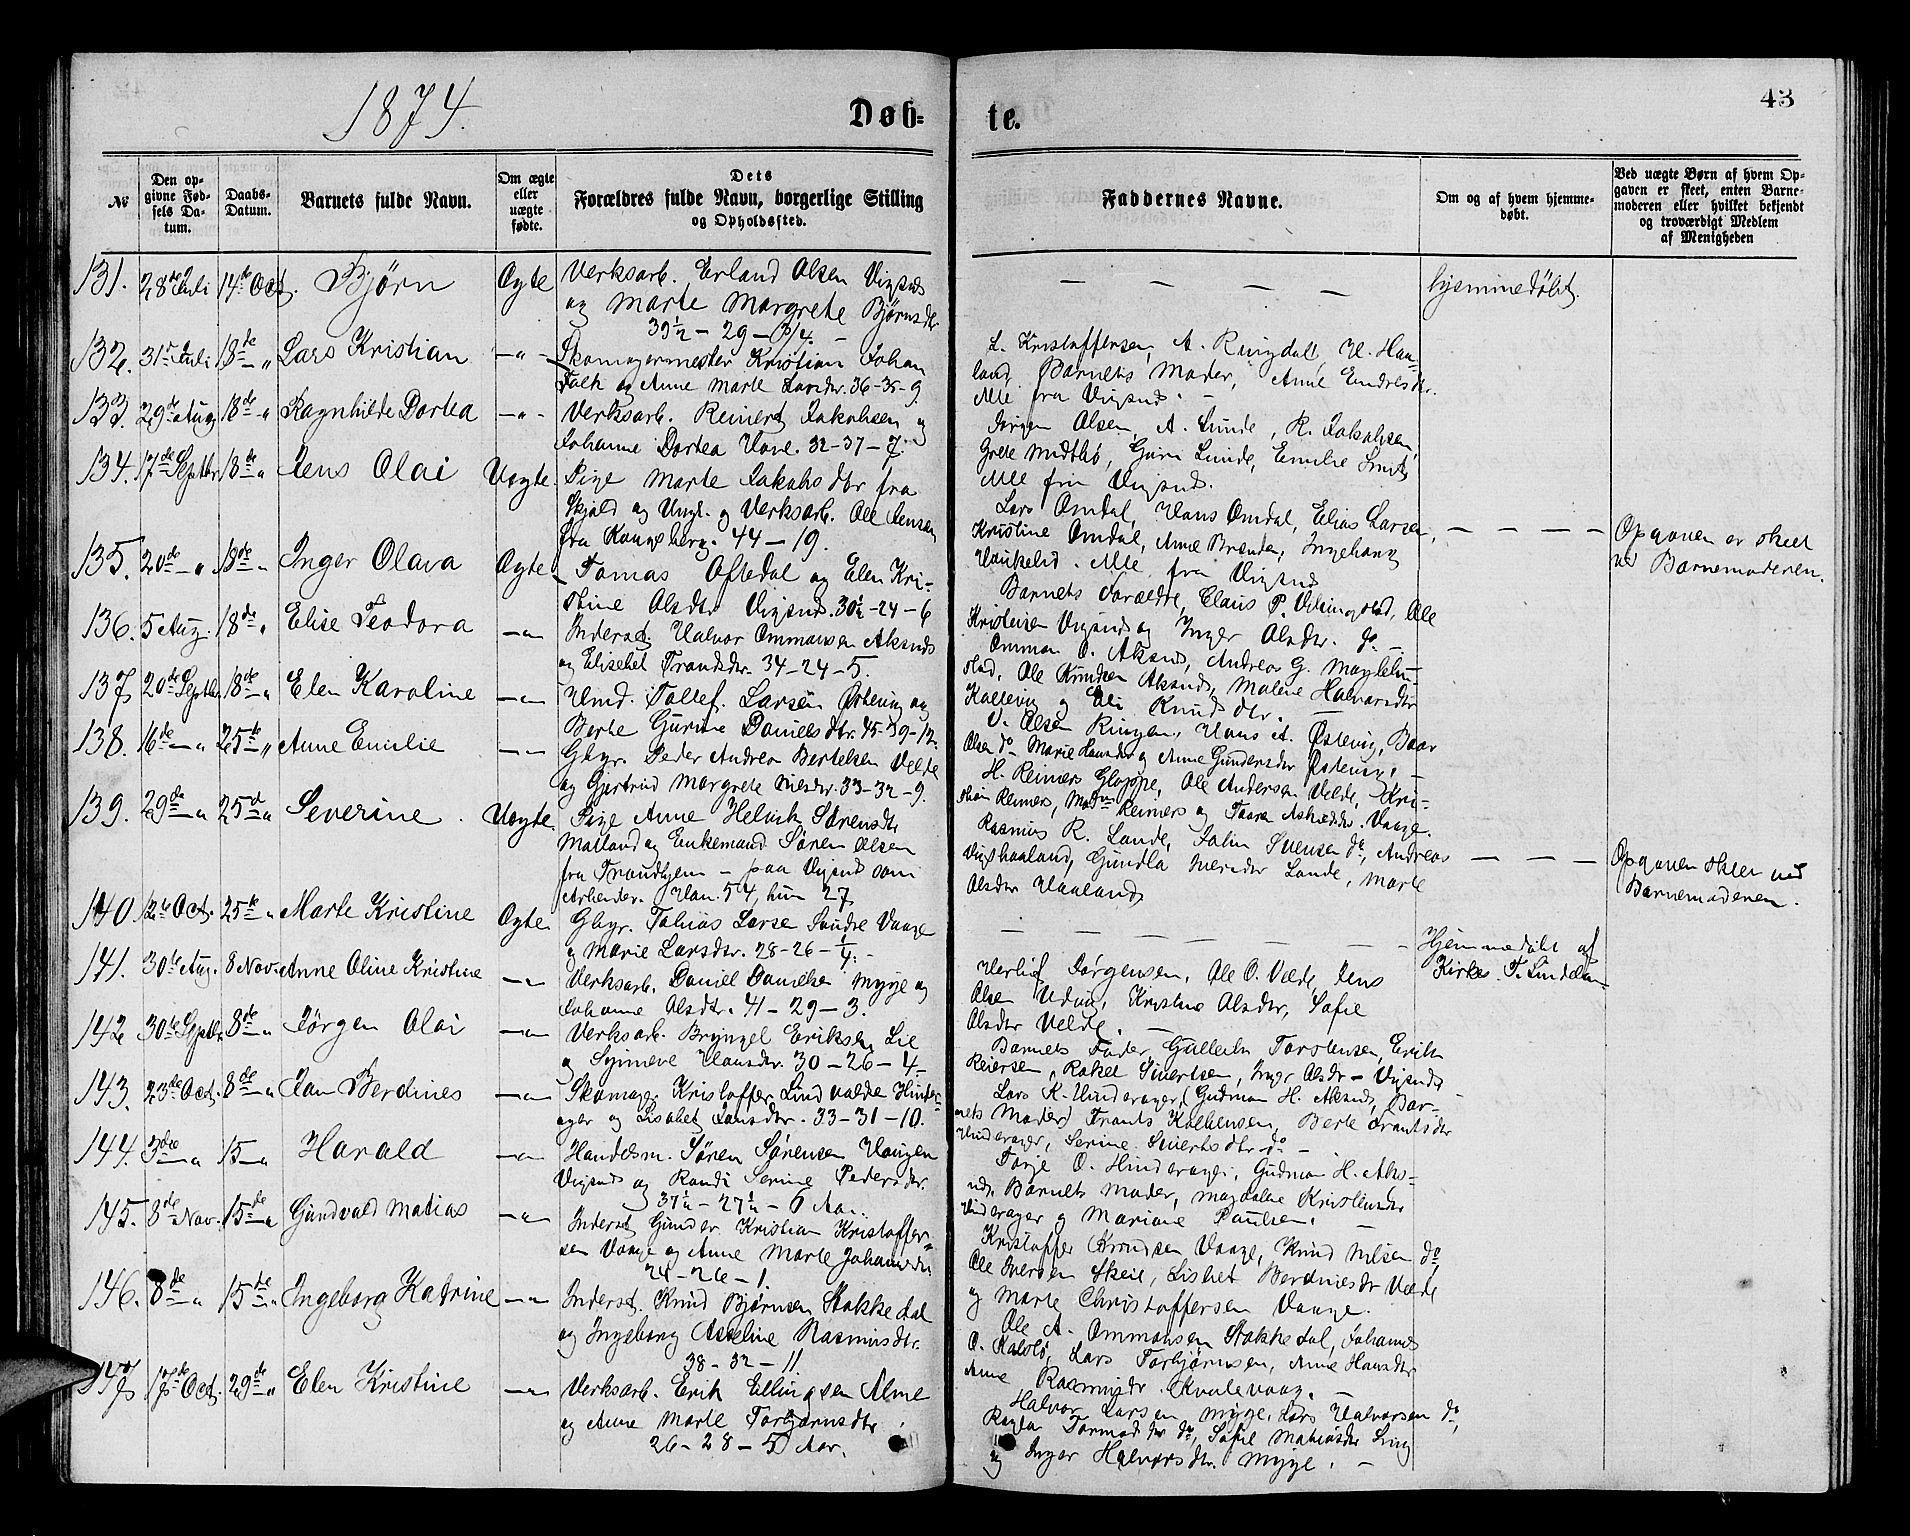 1874.
Døb-
te.
43
№
Den op-
givne Fød-
sels Da-
tum.
Daabs-
Datum.
Barnets fulde Navn.
Om ægte
eller
uægte
fødte.
Dets
Forældres fulde Navn, borgerlige Stilling
og Opholdssted.
Faddernes Navne.
Om og af hvem hjemme-
døbt.
Ved uægte Børn af hvem Op-
gaven er skeet, enten Barne-
moderen eller hvilket bekjendt
og troværdigt Medlem
af Menigheden
131. 28de Juli 14de Oct. Bjørn Ægte Verksarb. Erland Olsen Vigsnes
og Marte Margrete Bjørnsdtr
39½ - 29 - 3/4. -
— — — —
hjemmedøbt.
132. 31te Juli 18de " Lars Kristian —"— Skomagermester Kristian Johan
Falk og Anne Marte Larsdtr. 36-35-9.
L. Kristoffersen, A. Ringdal, H. Hau-
land. Barnets Moder, Anne Endresdtr.
Alle fra Vigsnes. -
133. 29de Aug. 18de " Ragnhilde Dortea —"— Verksarb. Reinert Jakobsen og
Johanne Dortea Vove. 32-37-7.
Jørgen Olsen, A. Lunde, R. Jakobsen,
Grete Midtbø, Guri Lunde, Emilie Smit,
Alle fra Vigsnes.
134. 17de Septbr. 18de " Jens Olai Uægte. Pige Marte Jakobsdtr fra
Skjold og Ungk. og Verksarb. Ole Jensen
fra Kongsberg. 44 - 19.
Lars Omdal, Hans Omdal, Elias Larsen,
Kristine Omdal, Anne Brenden, Ingeborg
Haukelid. Alle fra Vigsnes
— — — —
Opgaven er skeet
ved Barnemoderen.
135. 20de — " 18de " Inger Olava Ægte Tomas Oftedal og Elen Kri-
stine Olsdtr Vigsnes. 30½-24-6
Barnets Forældre, Claus P. Vikingstad, Ole
Kristensen Vigsnes og Inger Olsdtr. do -
136. 5 Aug. 18de " Elise Teodora —"— Inderst. Halvor Ommansen Aksnes
og Elisebet Trondsdtr. 34-24-5.
Omman O. Aksnes, Andreas G. Magele-
stad, Ole Knudsen Aksnes, Malene Halvorsdtr
Kallevig og Eli Knudsdtr. —
137. 20de Septbr. 18de " Elen Karoline —"— Hmd. Tollef Larsen Østevig og
Berte Gurine Danielsdtr. 45-39-12.
O. Olsen Ringen, Hans A. Østevig, Baar
Olsen do Marie Hansdtr og Anne Gundersdtr Østevig. -
138. 16de — " 25de " Anne Emilie —"— Gbgr. Peder Andreas Bertelsen Velde
og Gjertrud Margrete Nilsdtr. 33-32-9.
H. Reiners Gloppe, Ole Andersen Velde, Kri-
stian Reiners, Madm Reiners og Taara Aslaksdtr. Vaage.
139. 29de — " 25de " Severine. Uægte. Pige Anne Helvik Sørensdtr
Matland og Enkemand Søren Olsen
fra Trondhjem - paa Vigsnes som
Arbeider. Han 54, hun 27
Rasmus R. Lande, John Svensen do, Andreas
Vigshaaland, Gundla Iversdtr Lande, Marte
Olsdtr Haaland
— — —
Opgaven skeet ved
Barnemoderen.
140. 12te Oct. 25de " Marte Kristine Ægte Gbgr. Tobias Larsen Søndre Vaage
og Marie Larsdtr. 28-26-¼. -
— — — — — —
Hjemmedøbt af
Kirkes. T. Lindeland
141. 30te Aug. 8 Nov. Anne Oline Kristine —"— Verksarb. Daniel Danielsen Myge og
Johanne Olsdtr. 41-29-3.
Herlof Jørgensen, Ole O. Vede, Jens
Olsen Udvig, Kristine Olsdtr, Sofie
Olsdtr Velde. —
142. 30te Septbr. 8de " Jørgen Olai —"— Verksarb. Bryngel Eriksen Lie
og Synneve Hansdtr. 30-26-4.
Barnets Fader, Gulleik Torstensen, Erik
Reiersen, Rakel Sivertsen, Inger Olsdtr - Vigsnes
143. 23de Oct. 8de " Jan Berdines —"— Skomager Kristoffer Lindvaldsen Hinder-
ager og Lisabet Larsdtr. 33-31-10.
Lars K. Hinderager, (Gudmun H. Aksnes, Bar-
nets Moder) Frants Kolbensen, Berte Frantsdtr
Hinderager, Serine Sivertsdtr do -
144. 3die — " 15 — " Harald —"— Handelsm. Søren Sørensen Haugen
Vigsnes og Randi Serine Pedersdtr.
37½ - 27½ - 6 Aar.
Torje O. Hinderager, Gudmun H. Aks-
nes, Barnets Moder, Magdalene Kristensdtr
Hinderager og Mariane Paulsen. —
145. 8de Nov. 15de " Gundvald Matias —"— Inderst Gunder Kristian Kristoffer-
sen Vaage og Anne Marte Johannesdtr
24-26-1.
Kristoffer Knudsen Vaage, Knud Nilsen do,
Ole Iversen Skeie, Lisbet Berdinesdtr Vede
og Marte Christoffersen Vaage.
146. 8de " 15de " Ingeborg Katrine —"— Inderst. Knud Bjørnsen Stokkedal
og Ingeborg Asseline Rasmusdtr.
38-32-11
Ole A. Ommansen Stokkedal, Johannes
O. Kalstø, Lars Torbjørnsen, Anne Hansdtr
Anne Rasmusdtr. Kvalevaag. —
147 17de Oct. 29de " Elen Kristine —"— Verksarb. Erik Ellingsen Alme
og Anne Marte Torbjørnsdtr.
26-28-5 Aar.
Halvor Larsen Myge, Lars Halvorsen do,
Ragla Tormodsdtr do, Sofie Matiasdtr Ling
og Inger Halvorsdtr. Myge. —